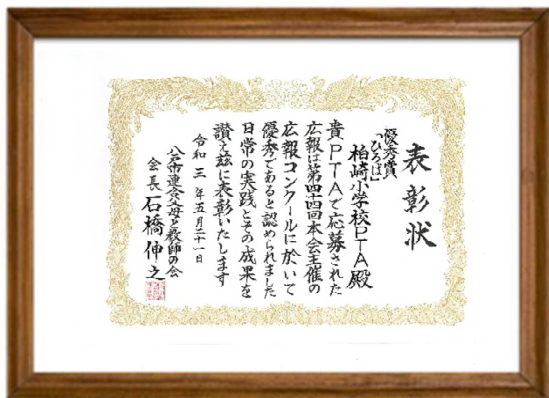 表彰状
優秀賞
「ひろば」
柏崎小学校PTA殿
貴PTAで応募された
広報は第四十四回本会主催の
広報コンクールに於いて
優秀であると認められました
日常の実践とその成果を
讃え玆に表彰いたします
令和三年五月二十一日
八戸市連合父母と教師の会
会長 石橋伸之